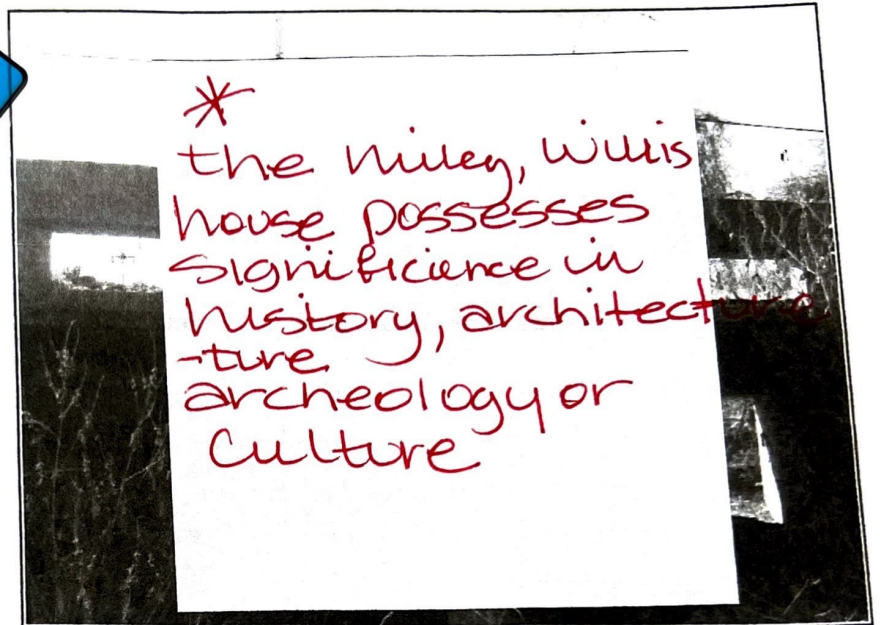 *
the Niley, Willis
house possesses
significience in
history, architecture
-ture
archeology or
culture